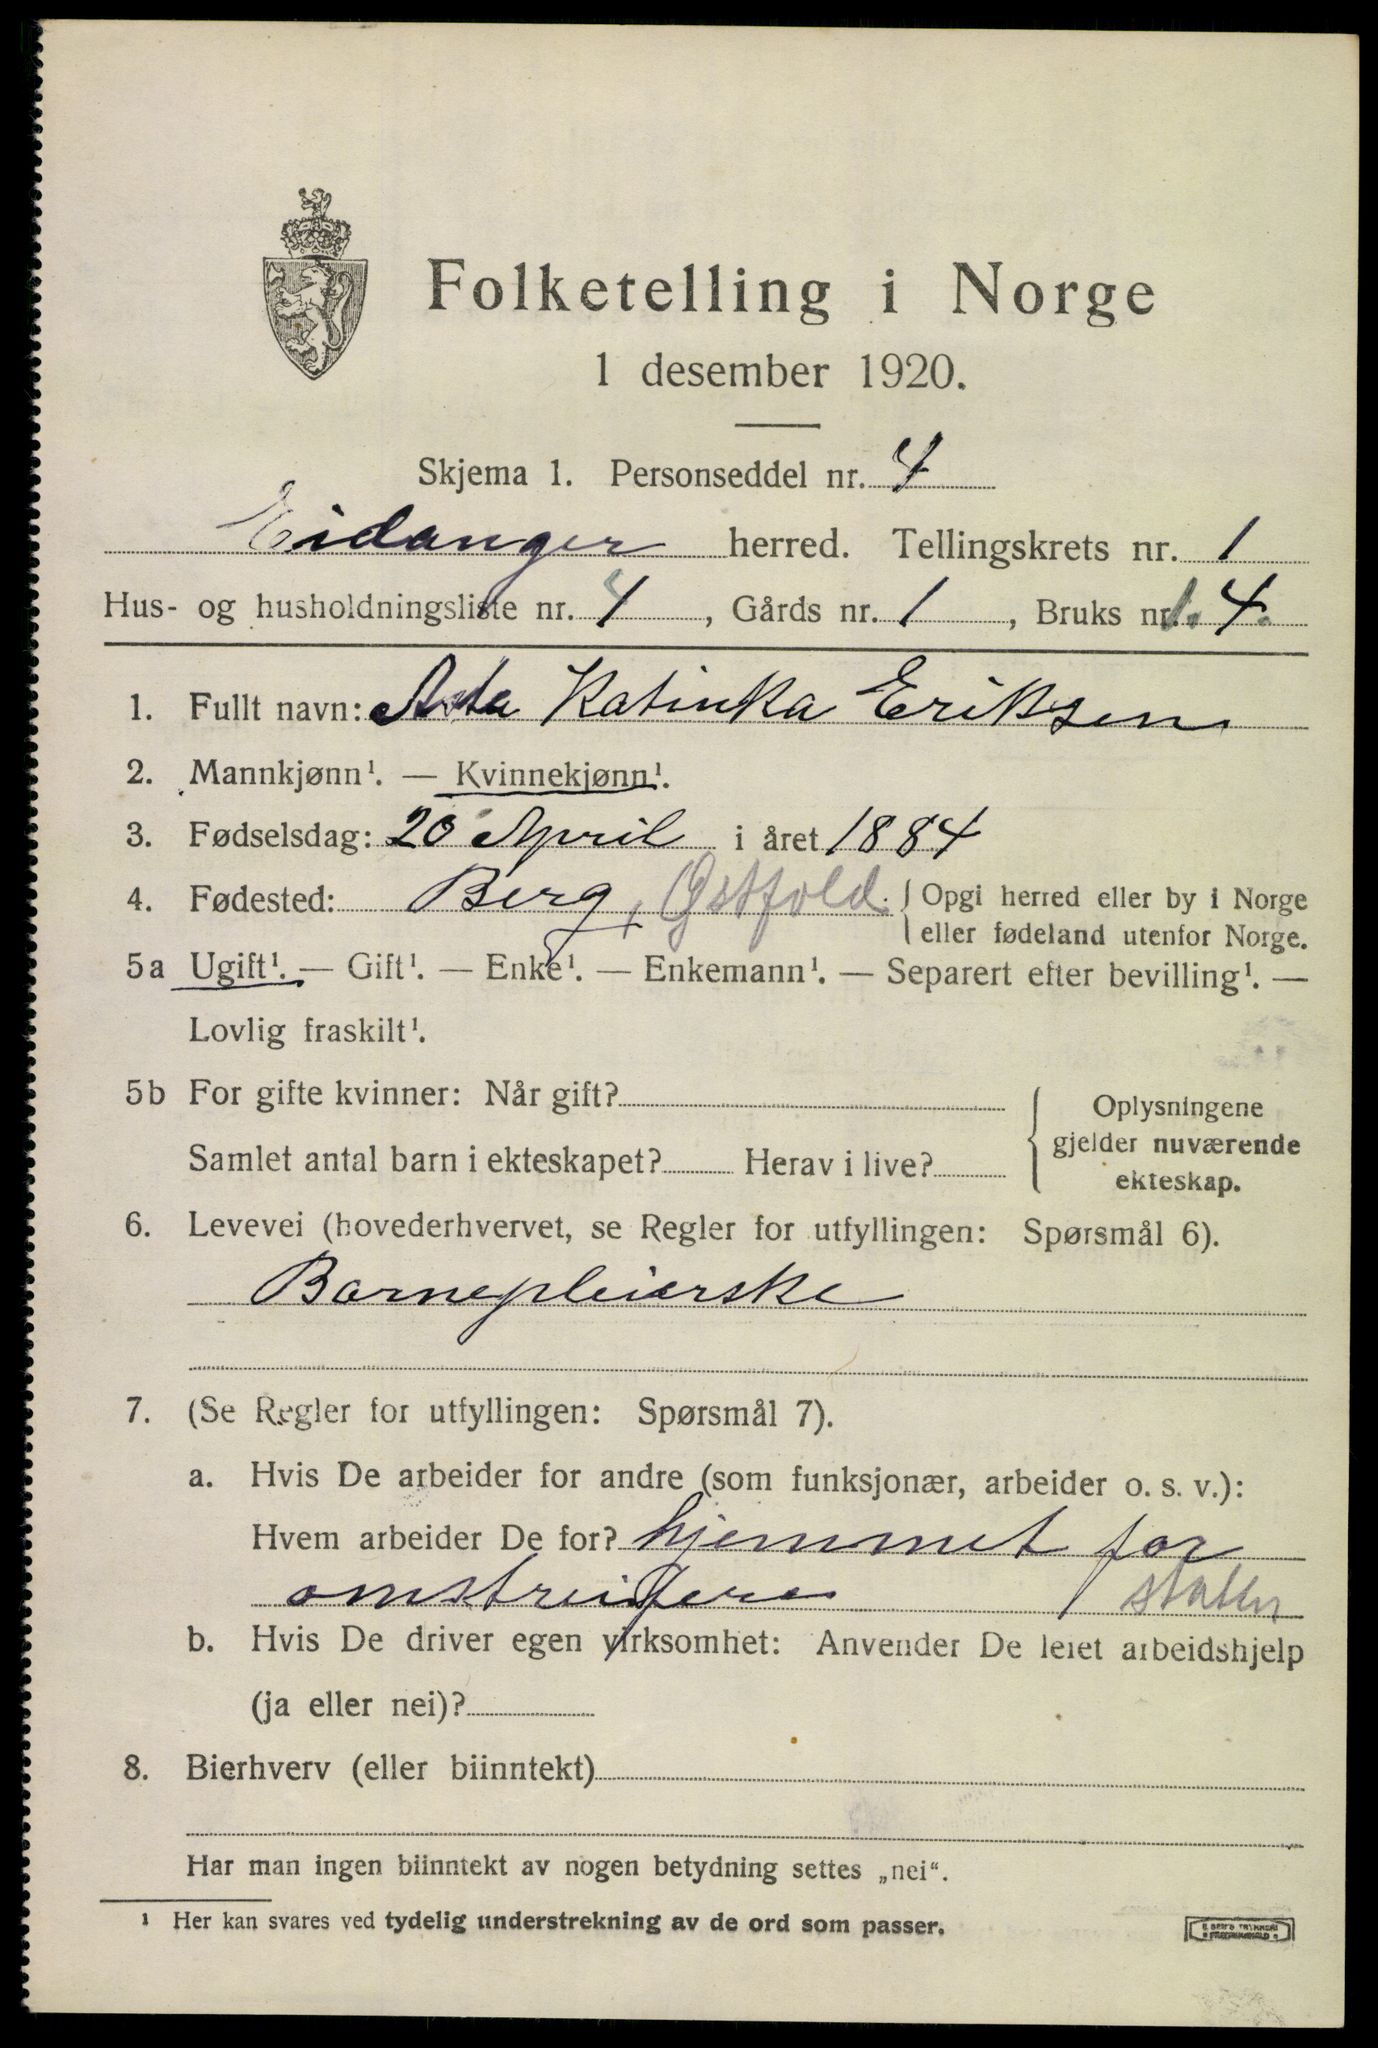 Folketelling i Norge
1 desember 1920.
Skjema 1. Personseddel nr. 4
Eidanger herred. Tellingskrets nr. 1
Hus- og husholdningsliste nr. 4, Gårds nr. 1, Bruks nr. 1. 4.
1. Fullt navn: Katinka Eriksen
2. Mannkjønn¹. — Kvinnekjønn¹.
3. Fødselsdag: 20 April i året 1884
4. Fødested: Berg, Østfold. { Opgi herred eller by i Norge
eller fødeland utenfor Norge.
5a Ugift¹. — Gift¹. — Enke¹. — Enkemann¹. — Separert efter bevilling¹. —
Lovlig fraskilt¹.
5b For gifte kvinner: Når gift?
Samlet antal barn i ekteskapet? Herav i live?
{ Oplysningene
gjelder nuværende
ekteskap.
6. Levevei (hovederhvervet, se Regler for utfyllingen: Spørsmål 6).
Barnepleierske
7. (Se Regler for utfyllingen: Spørsmål 7).
a. Hvis De arbeider for andre (som funksjonær, arbeider o. s. v.):
Hvem arbeider De for? hjemmet for
omstreifere staten
b. Hvis De driver egen virksomhet: Anvender De leiet arbeidshjelp
(ja eller nei)?
8. Bierhverv (eller biinntekt)
Har man ingen biinntekt av nogen betydning settes „nei“.
¹ Her kan svares ved tydelig understrekning av de ord som passer.